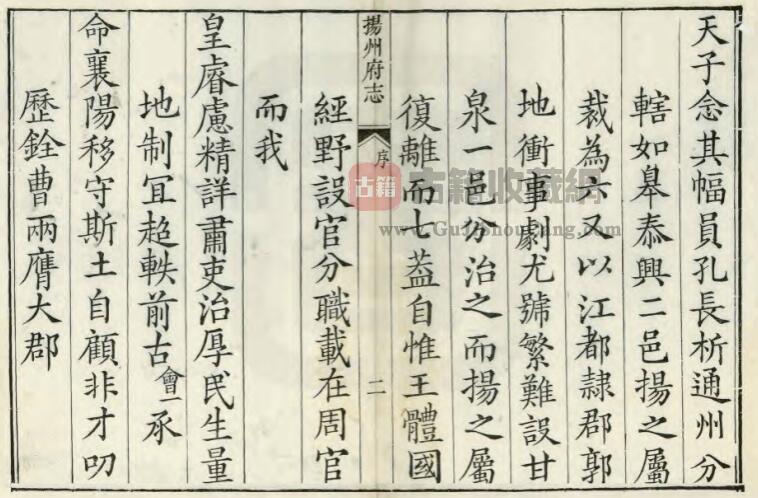 天子念其幅員孔長析通州分
轄如皋泰興二邑揚之屬
裁為六又以江都隷郡郭
地衝事劇尤號繁難設甘
泉一邑分治之而揚之屬
復離而七葢自惟王體國
揚州府志
序
二
經野設官分職載在周官
而我
皇睿慮精詳肅吏治厚民生量
地制宜超軼前古會一承
命襄陽移守斯土自顧非才叨
歷銓曹兩膺大郡
古籍
古籍收藏網
www.GujiShouCang.com